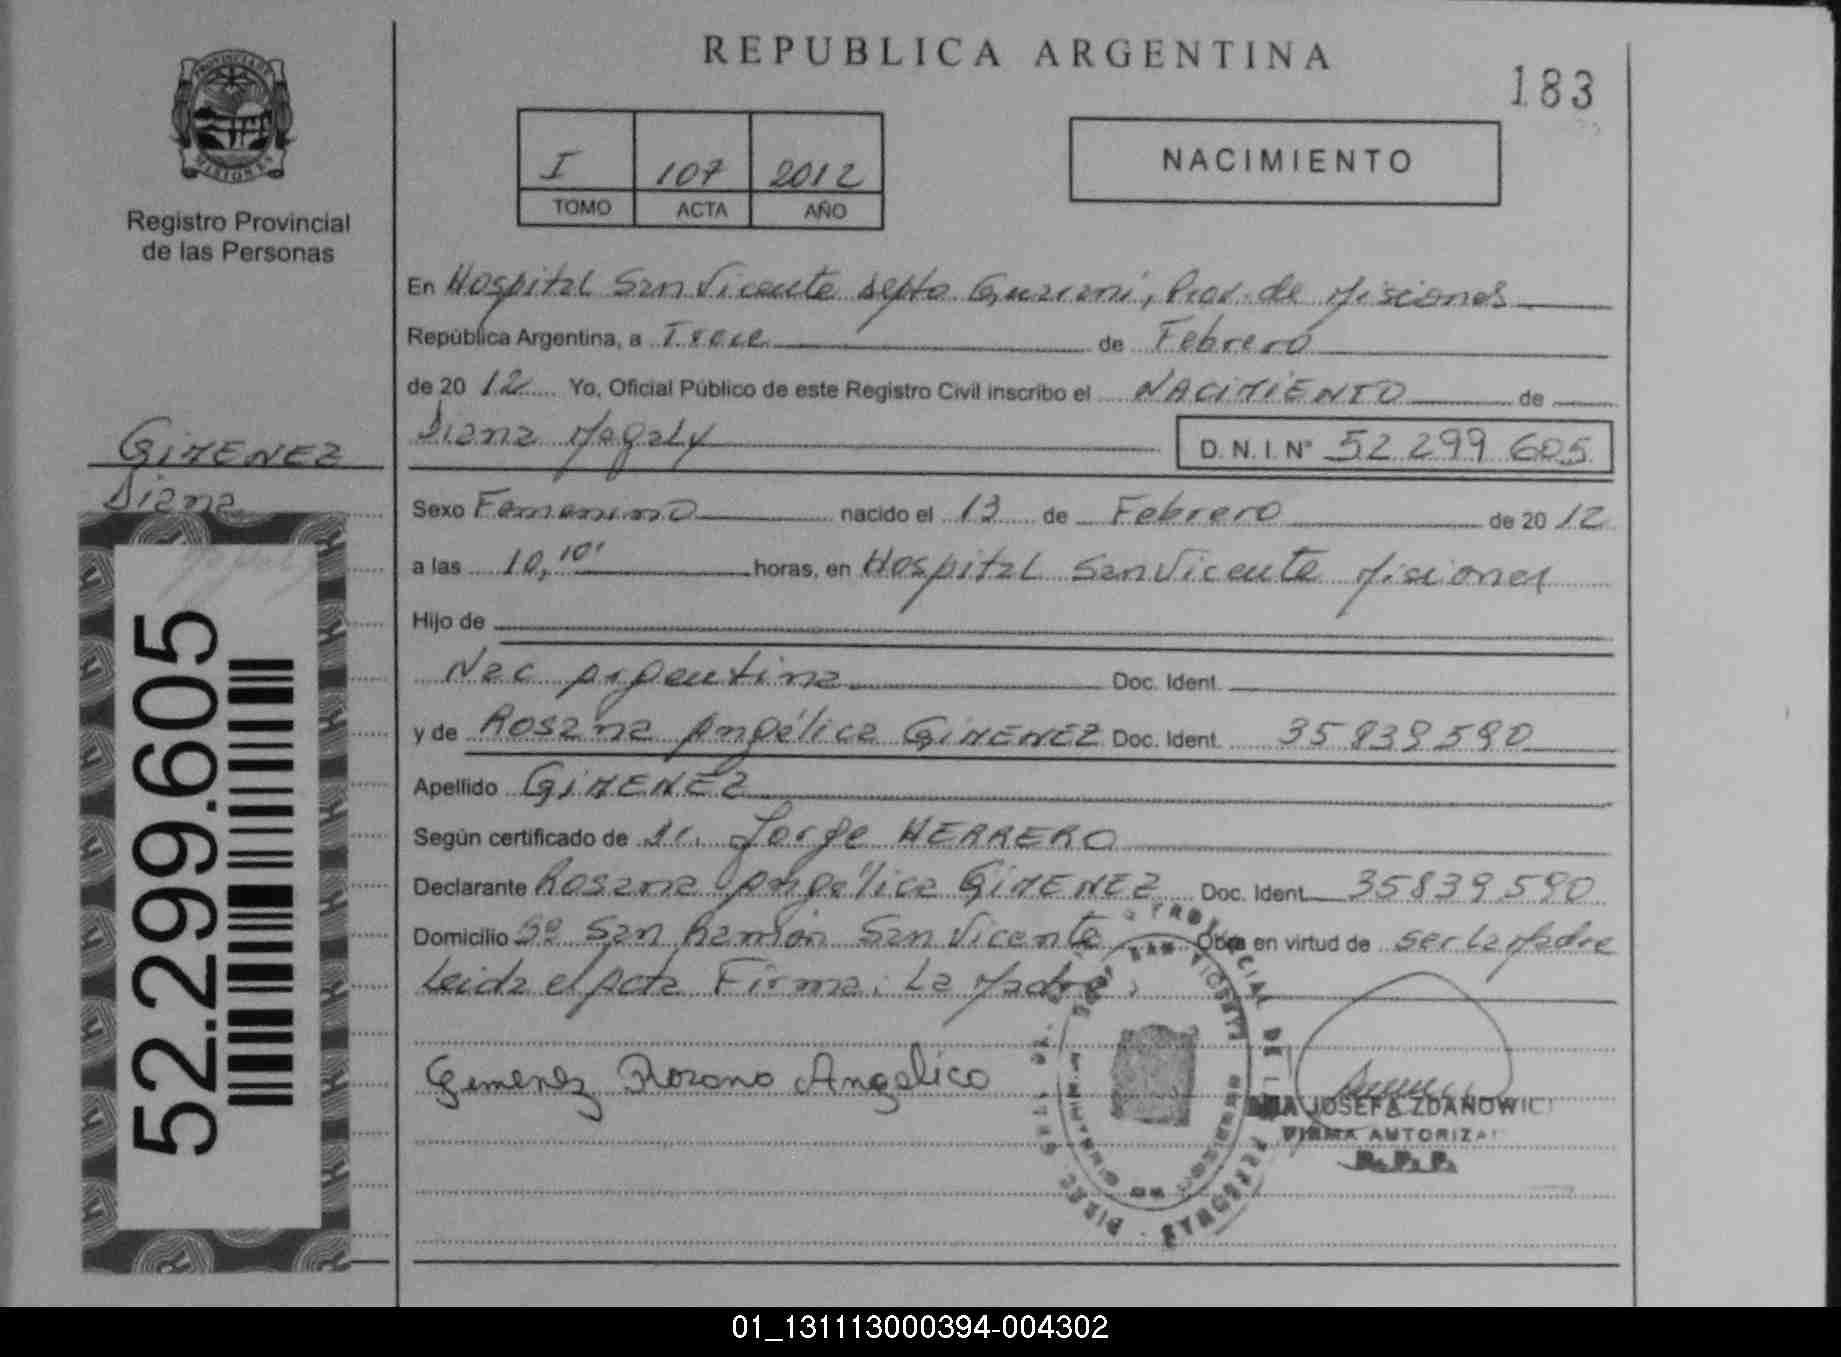 REPUBLICA ARGENTINA
183
PROVINCIA DE
MISIONES
Registro Provincial
de las Personas
I 107 2012
TOMO ACTA AÑO
NACIMIENTO
En Hospital San Vicente depto Guarani, Prov. de Misiones
República Argentina, a Trece de Febrero
de 20 12 Yo, Oficial Público de este Registro Civil inscribo el NACIMIENTO de
Diana Magaly D.N.I. Nº 52 299 605
GIMENEZ
Diana
Magaly
52.299.605
Sexo Femenino nacido el 13 de Febrero de 20 12
a las 10,10' horas, en Hospital San Vicente Misiones
Hijo de
Nac Argentina Doc. Ident.
y de Rosana Angélica GIMENEZ Doc. Ident. 35 839 590
Apellido GIMENEZ
Según certificado de Dr. Jorge HERRERO
Declarante Rosana Angélica GIMENEZ Doc. Ident. 35839590
Domicilio Bº San Ramón San Vicente Obra en virtud de ser la Madre
Leida el Acta Firma: La Madre
Gimenez Rozana Angelica
JOSEFA ZDANOWIC
FIRMA AUTORIZA
R.P.P.
01_131113000394-004302